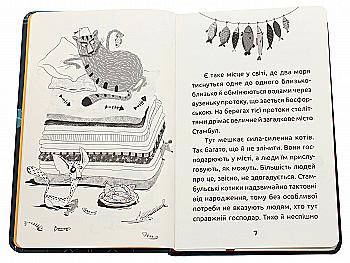 Є таке місце у світі, де два моря
тиснуться одне до одного близько-
близько й обмінюються водами через
вузеньку протоку, що зветься Босфор-
ською. На берегах тієї протоки століт-
тями дрімає величне й загадкове місто
Стамбул.
Тут мешкає сила-силенна котів.
Так багато, що й не злічити. Вони гос-
подарюють у місті, а люди їм прислу-
говують, як можуть. Більшість людей
про це, звісно, не здогадується. Стам-
бульські котики надзвичайно тактовні
від народження, тому без особливої
потреби не вказують людям, хто тут
справжній господар. Тихо й неспішно
7